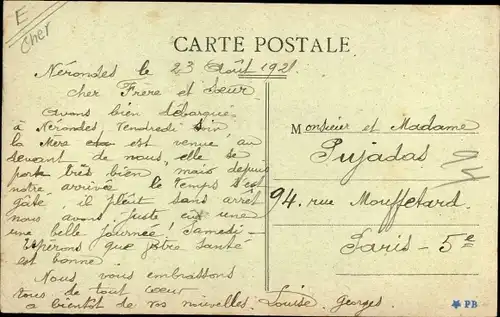 E
Cher
CARTE POSTALE
Nérondes le 23 Août 1921
Cher Frère et Sœur
Avons bien débarqué
à Nérondes, Vendredi soir
la Mère est venue au
devant de nous, elle se
porte très bien mais depuis
notre arrivée le temps s'est
gâté, il pleut sans arrêt
nous avons juste eu une
une belle journée! Samedi -
Espérons que votre santé
est bonne.
Nous vous embrassons
tous de tout cœur
a bientôt de vos nouvelles. Louise. Georges.
Monsieur et Madame
Pujadas
94. rue Mouffetard.
Paris - 5e
PB